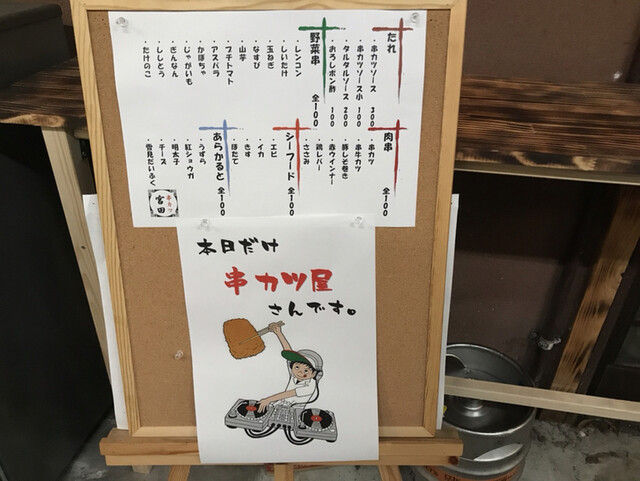 たれ
・串カツソース 300
・串カツソース小 100
・タルタルソース 200
・おろしポン酢 100
野菜串 全100
・レンコン
・しいたけ
・玉ねぎ
・なすび
・山芋
・プチトマト
・アスパラ
・かぼちゃ
・じゃがいも
・ぎんなん
・ししとう
・たけのこ
肉串 全100
・串カツ
・串牛カツ
・豚しそ巻き
・赤ウインナー
・鶏レバー
・ささみ
シーフード 全100
・エビ
・イカ
・きす
・ほたて
あらかると 全100
・うずら
・紅ショウガ
・明太子
・チーズ
・雪見だいふく
串カツ
宮田
本日だけ
串カツ屋
さんです。